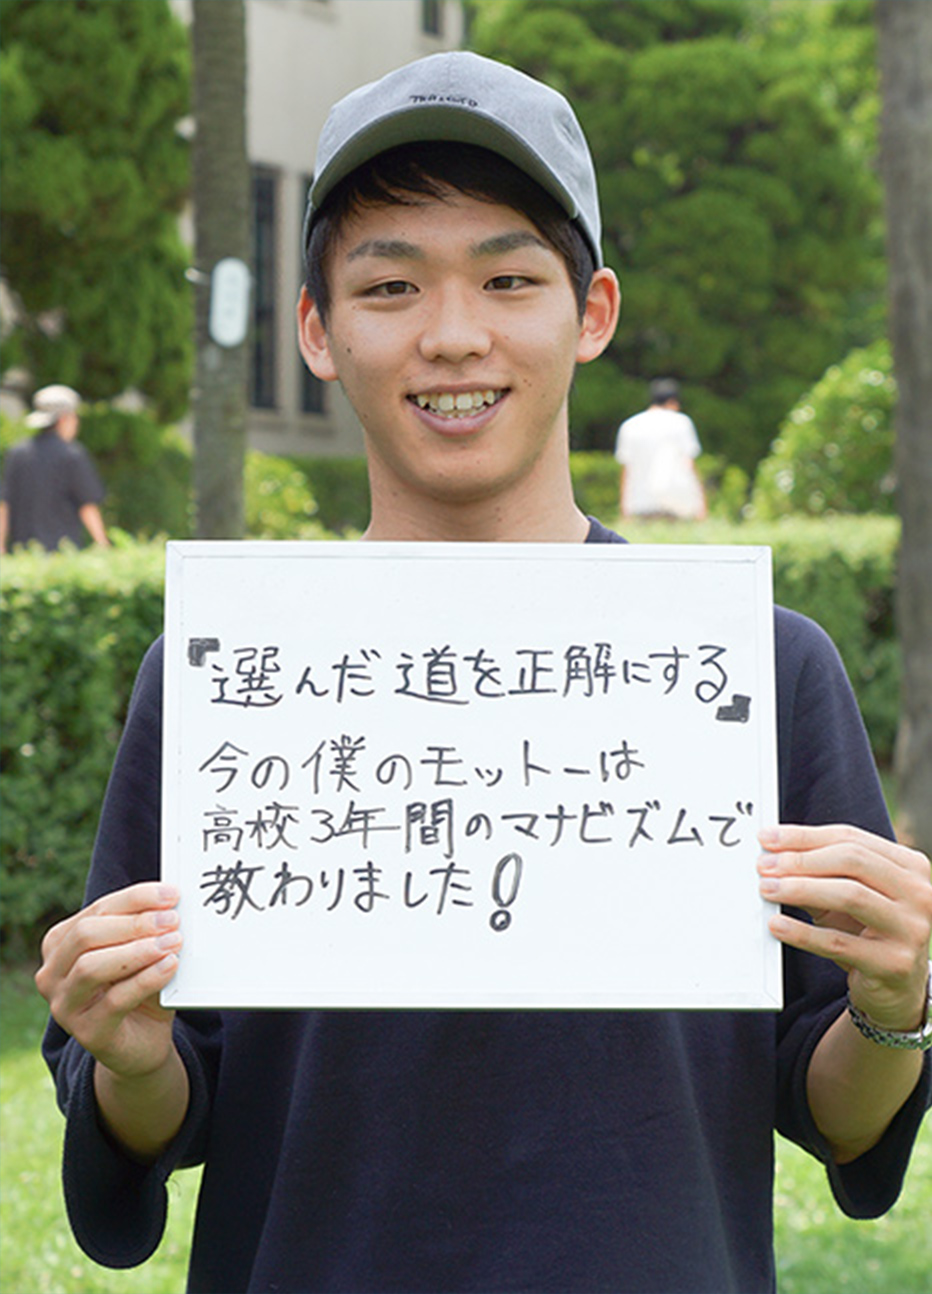 『選んだ道を正解にする』
今の僕のモットーは
高校3年間のマナビズムで
教わりました!